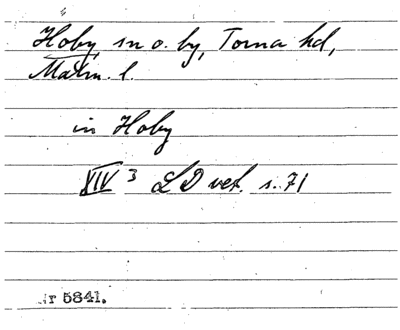 Hoby, sn o. by, Torna hd,
Malm. l.
in Hoby
XIV 3 LD vet. s. 71
nr 5841.